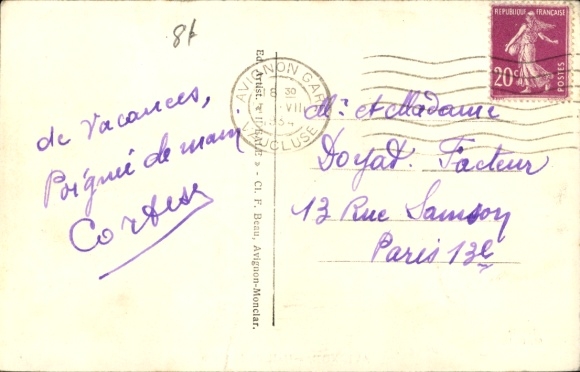 8f
de vacances,
Poignée de main
Cortese
Ed. Artist. « HELLE » - Cl. F. Beau, Avignon-Monclar.
AVIGNON GARE
8 30
VII
1934
VAUCLUSE
REPUBLIQUE FRANÇAISE
20c
POSTES
Mr et Madame
Doyat. Facteur
13 Rue Samson
Paris 13e